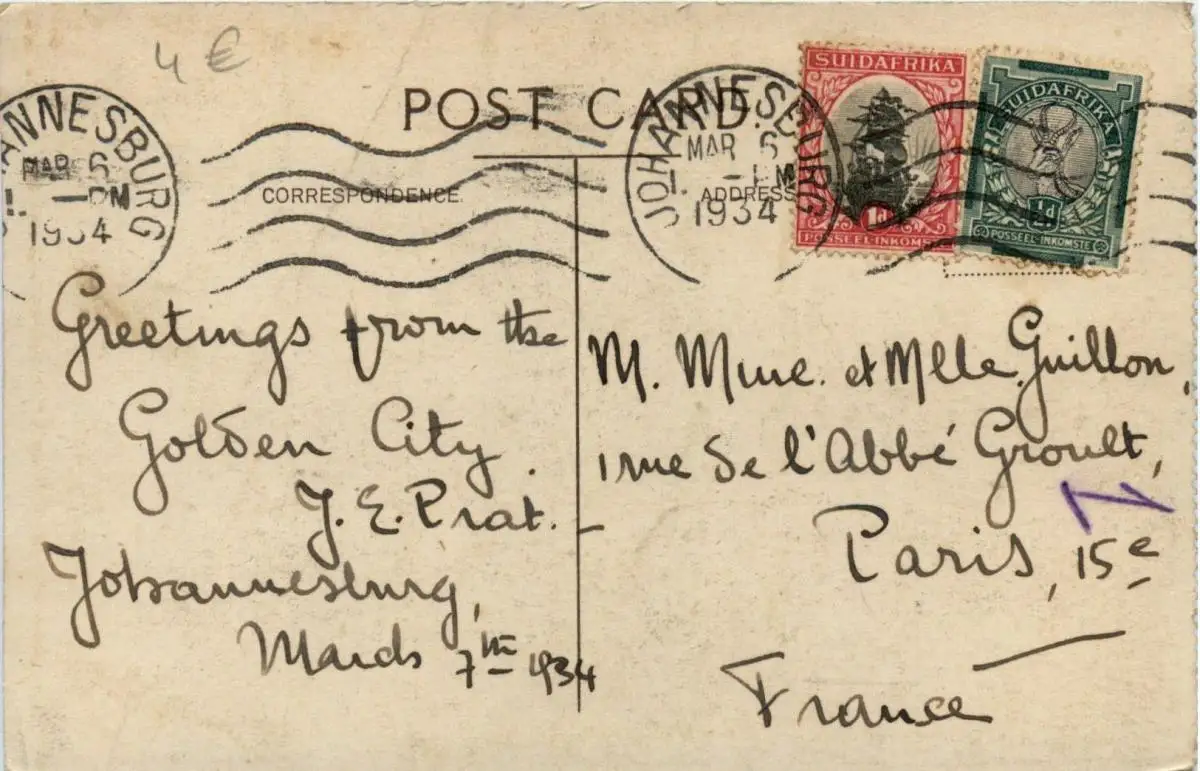 4 €
POST CARD.
JOHANNESBURG
MAR 6
PM
1934
JOHANNESBURG
MAR 6
1. - PM
1934
SUIDAFRIKA
1d
POSSEEL-INKOMSTE
SUIDAFRIKA
½d
POSSEEL-INKOMSTE
CORRESPONDENCE.
ADDRESS
Greetings from the
Golden City.
J. E. Prat.
Johannesburg,
March 7th 1934
M. Mme. et Mlle. Guillon,
1 rue de l'Abbé Groult,
Paris, 15e
France